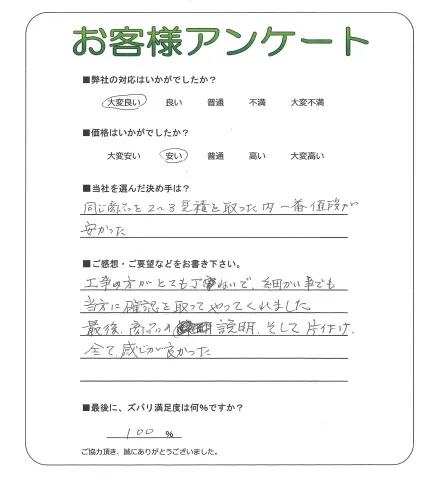 お客様アンケート
■弊社の対応はいかがでしたか？
大変良い 良い 普通 不満 大変不満
■価格はいかがでしたか？
大変安い 安い 普通 高い 大変高い
■当社を選んだ決め手は？
同じ商品を2〜3見積を取った内 一番値段が
安かった
■ご感想・ご要望などをお書き下さい。
工事の方がとても丁寧ないで、細かい事でも
当方に確認を取ってやってくれました。
最後、商品の 説明、そして片付け、
全て感じが良かった
■最後に、ズバリ満足度は何％ですか？
100 ％
ご協力頂き、誠にありがとうございました。